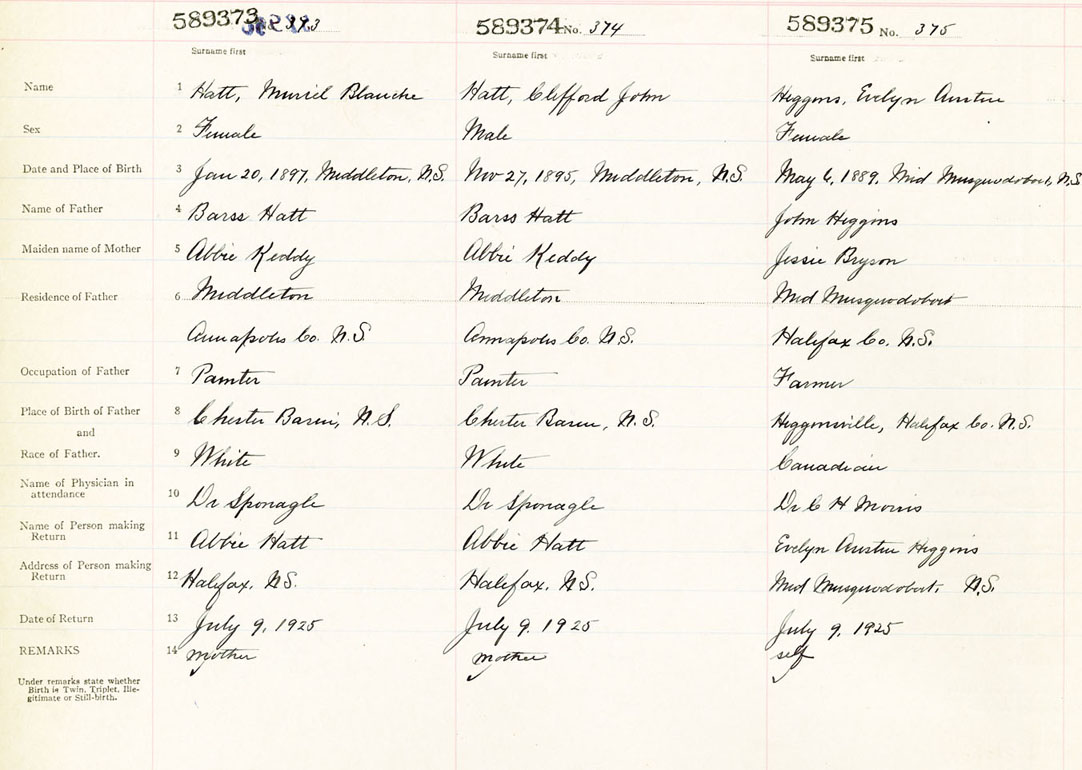 589373 373
Surname first
589374 No. 374
Surname first
589375 No. 375
Surname first
Name 1 Hatt, Muriel Blanche
Hatt, Clifford John
Higgins, Evelyn Austin
Sex 2 Female
Male
Female
Date and Place of Birth 3 Jan 20, 1897, Middleton, N.S.
Nov 27, 1895, Middleton, N.S.
May 6, 1889, Mid Musquodoboit, N.S
Name of Father 4 Barss Hatt
Barss Hatt
John Higgins
Maiden name of Mother 5 Abbie Keddy
Abbie Keddy
Jessie Bryson
Residence of Father 6 Middleton
Middleton
Mid Musquodoboit
Annapolis Co. N.S.
Annapolis Co. N.S.
Halifax Co. N.S.
Occupation of Father 7 Painter
Painter
Farmer
Place of Birth of Father 8 Chester Basin, N.S.
Chester Basin, N.S.
Higginsville, Halifax Co. N.S.
and
Race of Father. 9 White
White
Canadian
Name of Physician in
attendance 10 Dr Sponagle
Dr Sponagle
Dr C H Morris
Name of Person making
Return 11 Abbie Hatt
Abbie Hatt
Evelyn Austin Higgins
Address of Person making
Return 12 Halifax, N.S.
Halifax, N.S.
Mid Musquodoboit, N.S.
Date of Return 13 July 9, 1925
July 9, 1925
July 9, 1925
REMARKS 14 mother
mother
self
Under remarks state whether
Birth is Twin, Triplet, Ille-
gitimate or Still-birth.